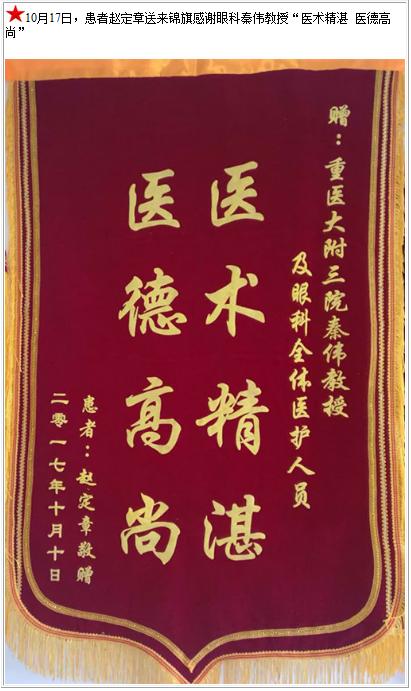 ★10月17日，患者赵定章送来锦旗感谢眼科秦伟教授“医术精湛 医德高
尚”
赠：重医大附三院秦伟教授
及眼科全体医护人员
医术精湛
医德高尚
患者：赵定章敬赠
二零一七年十月十日